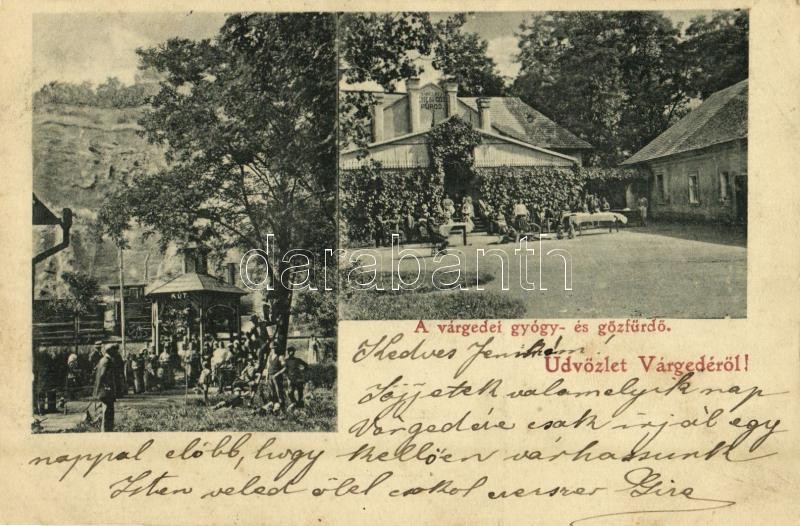 KÚT
FÜRDŐ
darabanth
A várgedei gyógy- és gőzfürdő.
Üdvözlet Várgedéről!
Kedves
Jőjjetek valamelyik nap
Várgedére csak irjál egy
nappal előbb, hogy kellően várhassunk
Isten veled ölel csokol ezerszer Giza